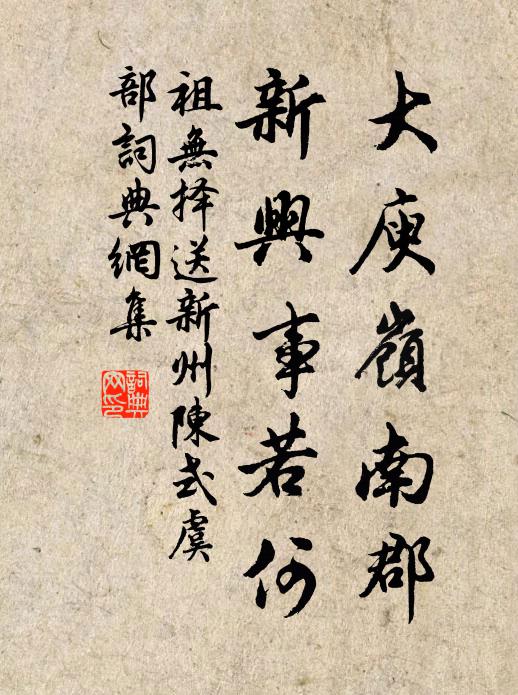 大庾嶺南郡
新興事若何
祖無择送新州陳式虞
部詞典網集
詞典網印